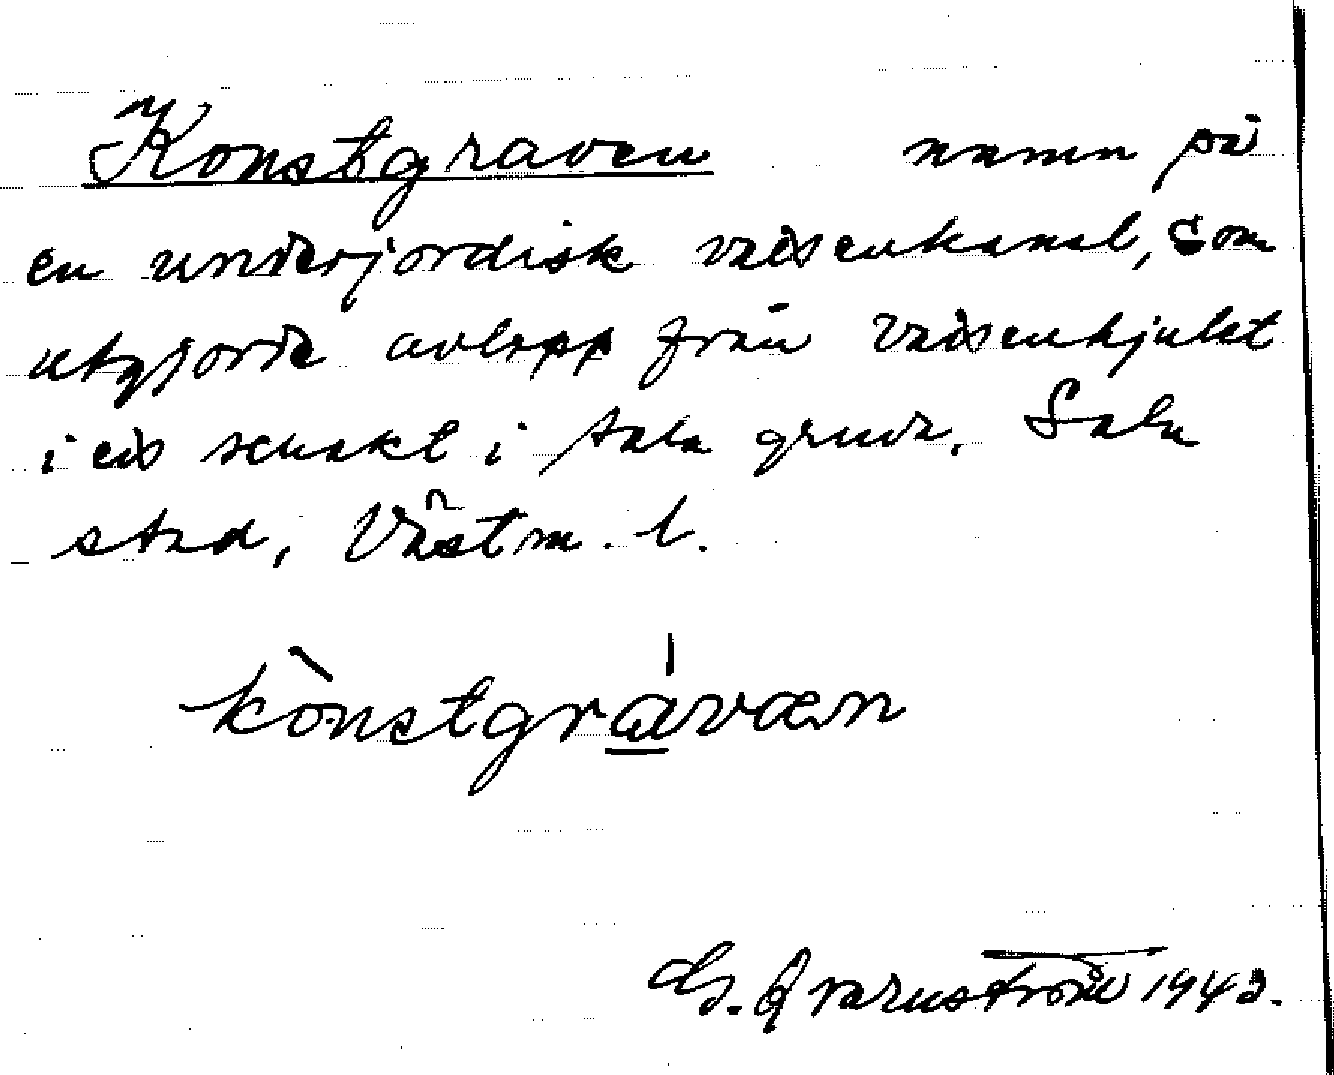 Konstgraven namn på
en underjordisk vattenkanal, som
utgjorde avlopp från vattenhjulet
i ett schakt i Sala gruva. Sala
stad, Västm. l.
kònstgrávæn
G. Qvarnström 1943.